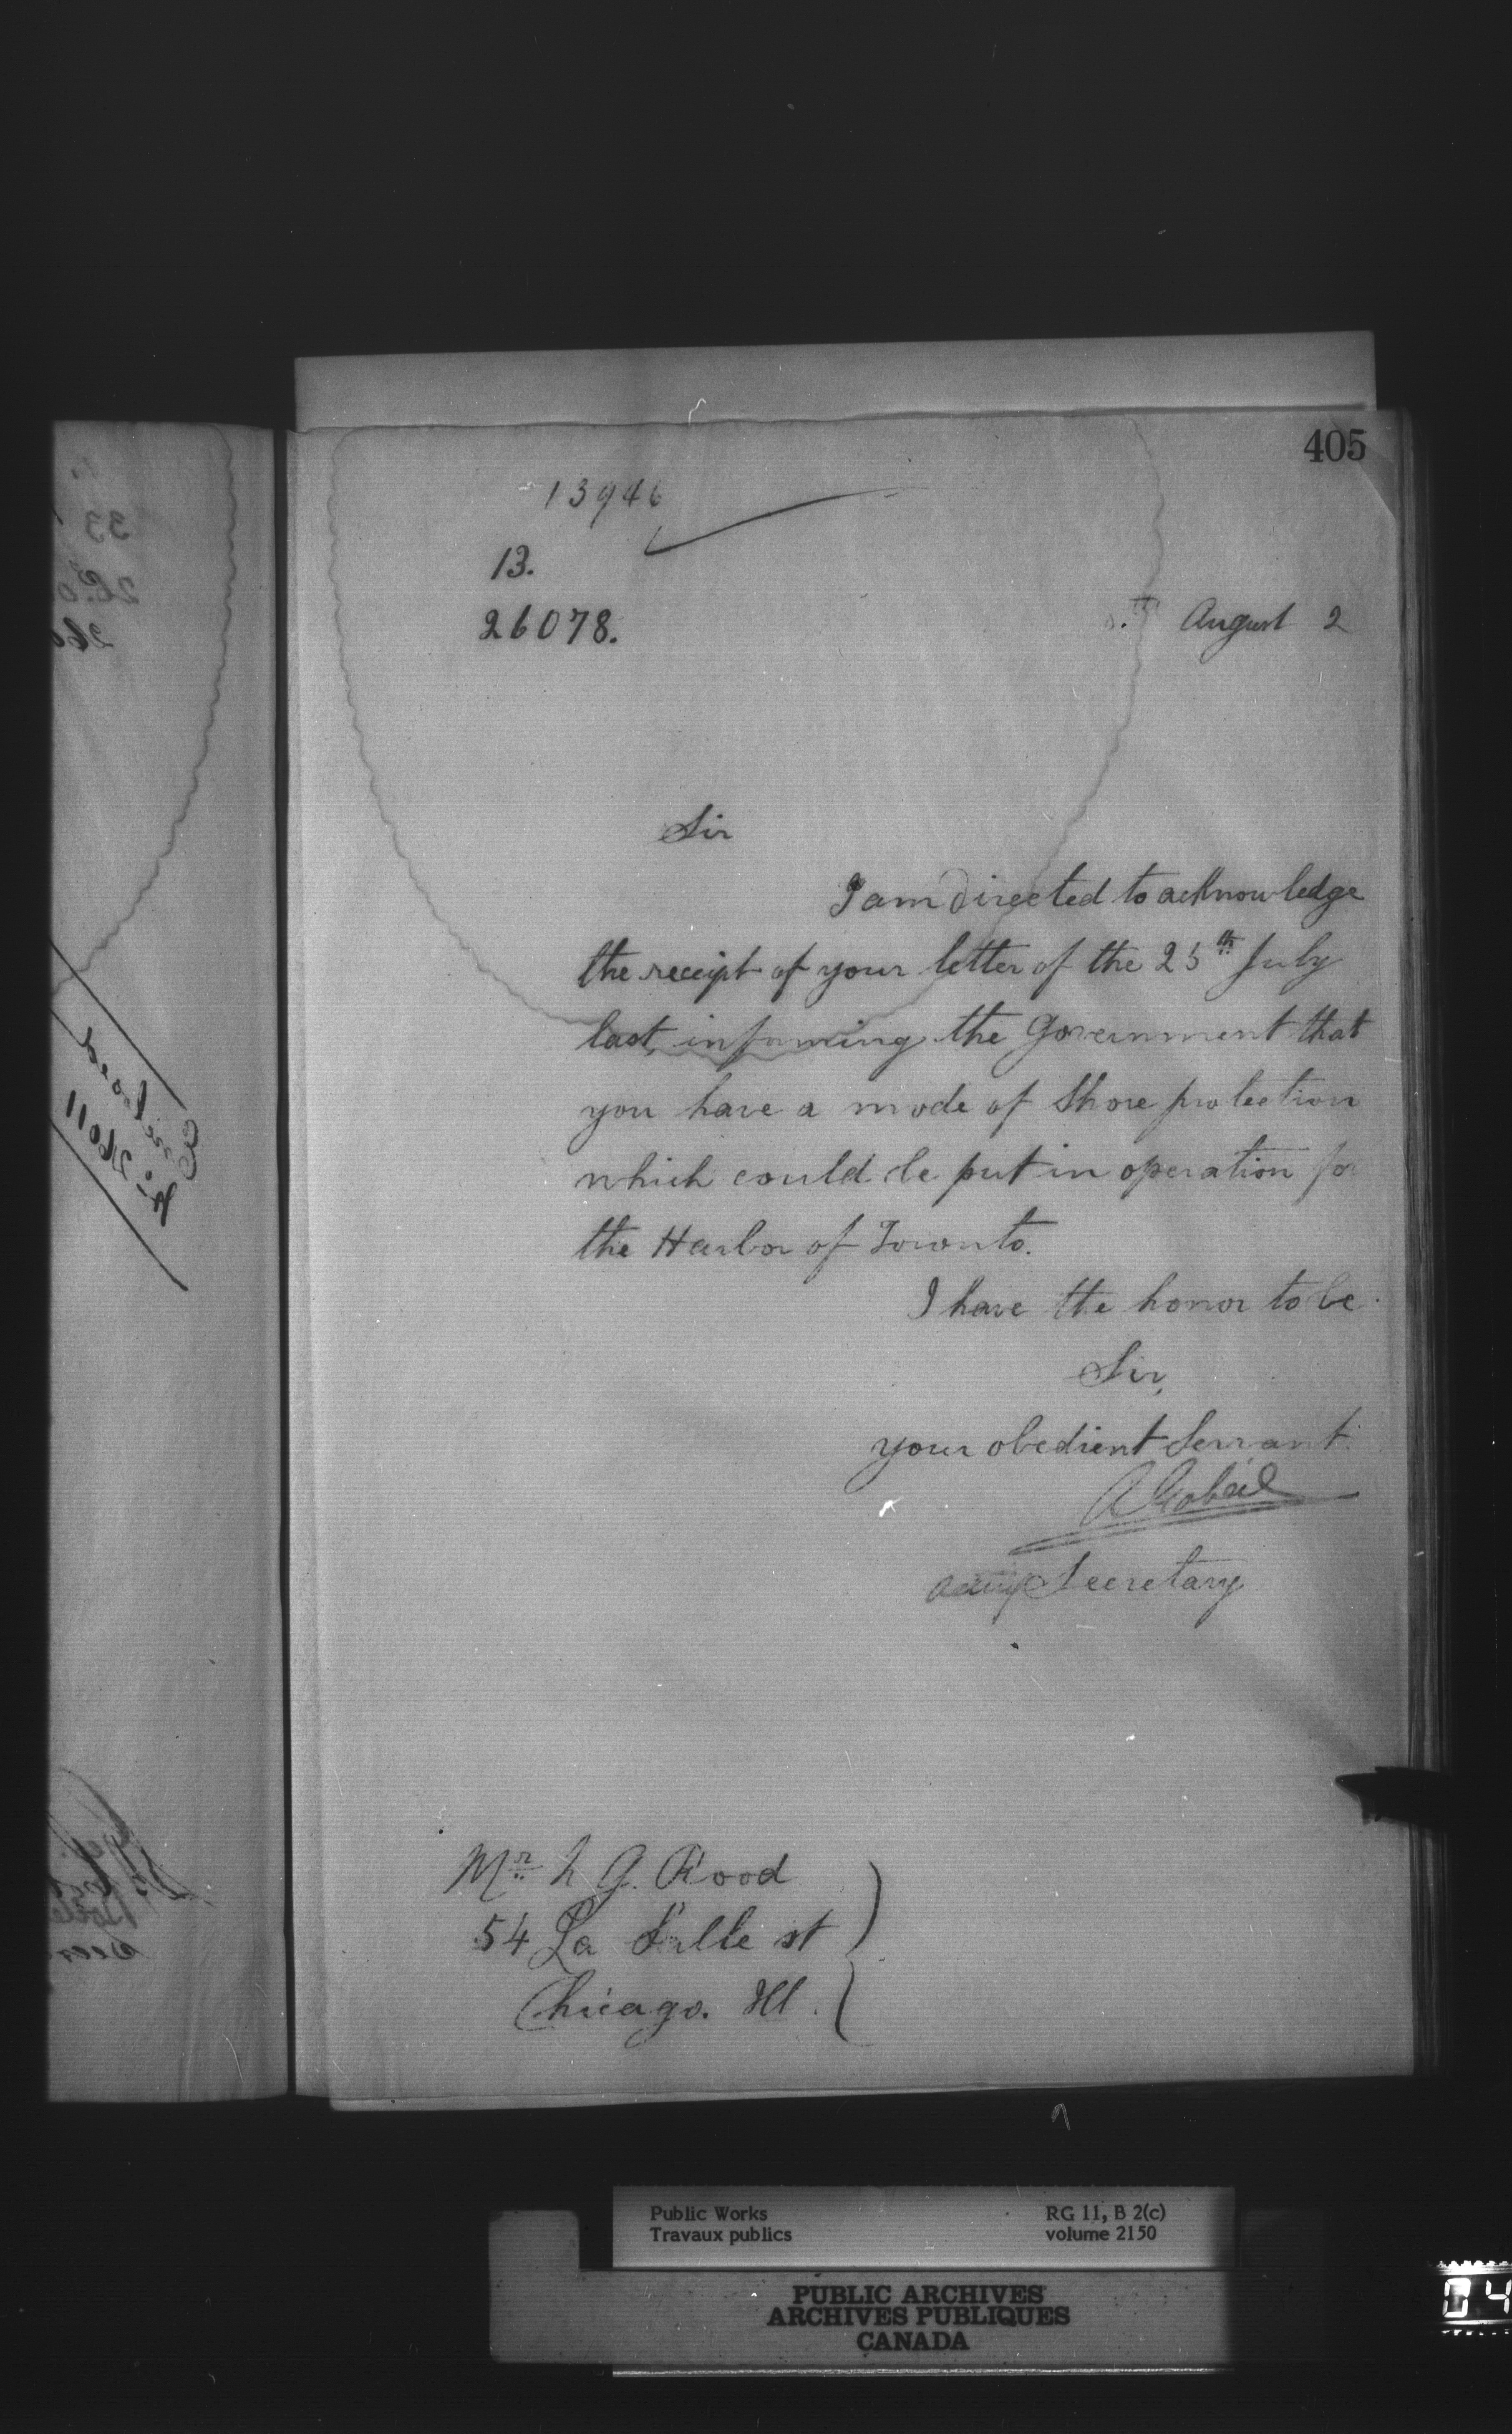 405
13946
13.
26078.
th August 2
Sir
I am directed to acknowledge
the receipt of your letter of the 25th July
last, informing the Government that
you have a mode of Shore protection
which could be put in operation for
the Harbor of Toronto.
I have the honor to be
Sir,
your obedient Servant
A Gobeil
acting Secretary
Mr L G. Rood
54 La Salle st
Chicago. Ill.
Public Works
Travaux publics
RG 11, B 2(c)
volume 2150
PUBLIC ARCHIVES
ARCHIVES PUBLIQUES
CANADA
04